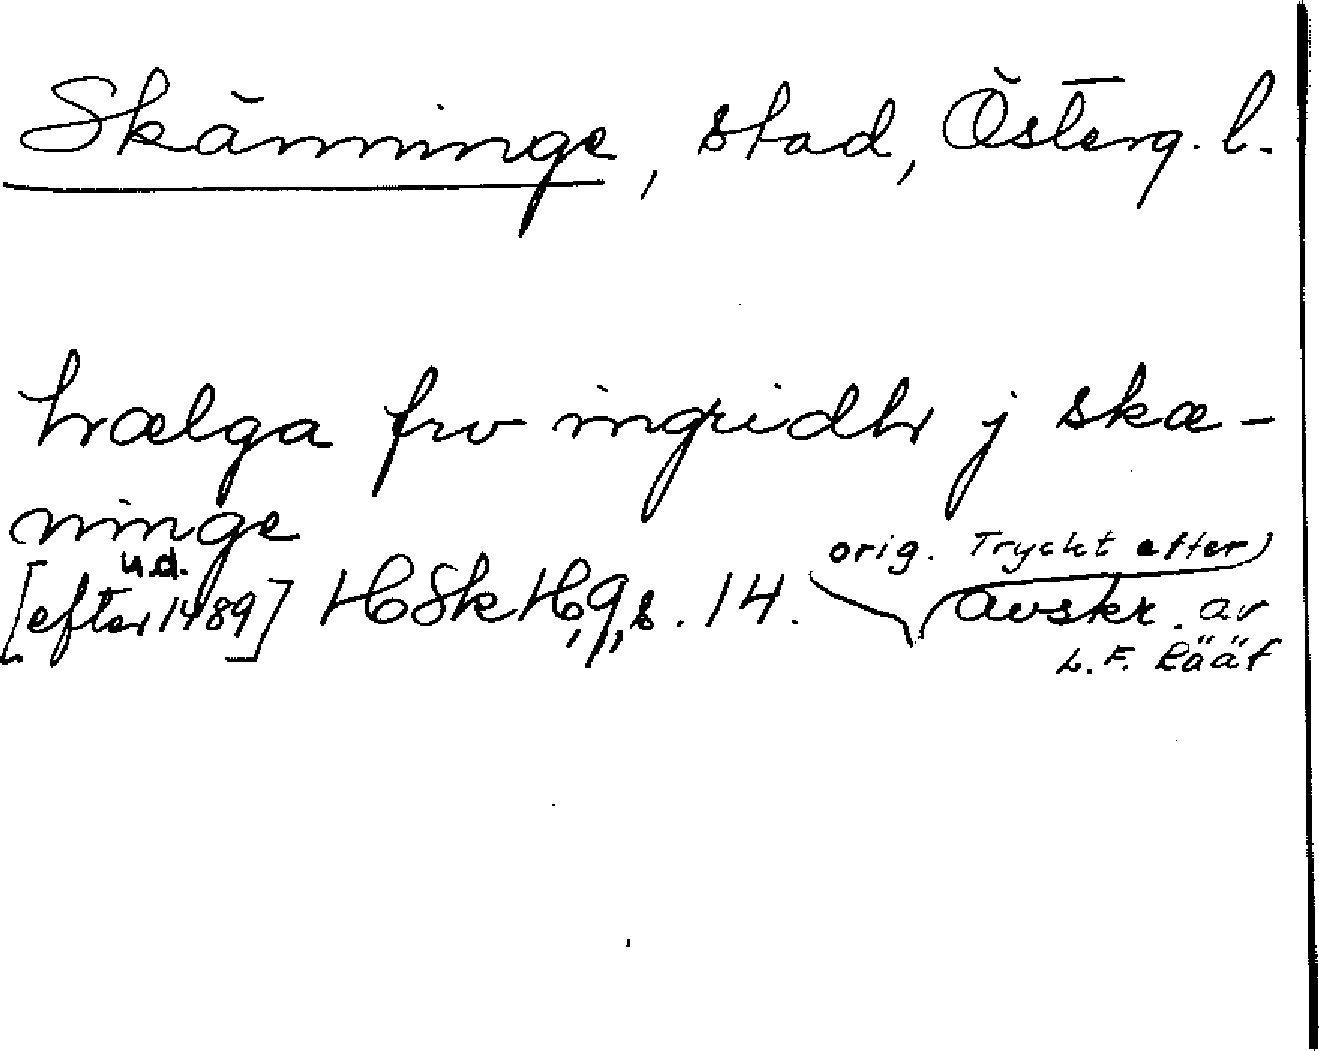 Skänninge, stad, Österg. l.
hælga fru ingridh j skæ-
ninge
u.d.
orig. Tryckt efter)
[efter 1489] HSkH, 9, s. 14. (avskr. av
L. F. Rääf